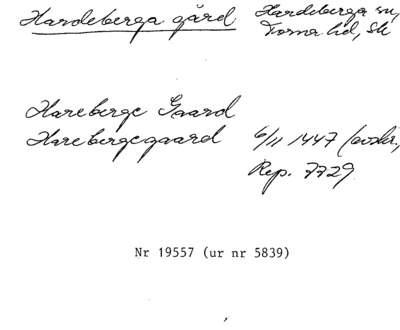 Hardeberga gård Hardeberga sn,
Torna hd, Sk
Hareberge Gaard
Harebergegaard 6/11 1447 (avskr.,
Rep. 7729
Nr 19557 (ur nr 5839)